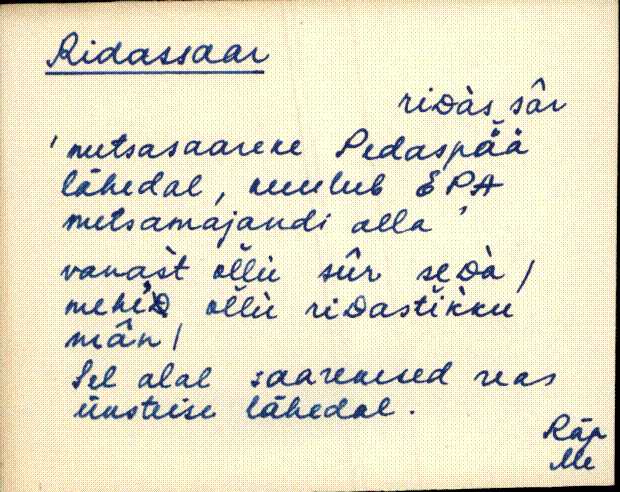 Ridassaar
riDàs sâr
'metsasaareke Pedaspää
lähedal, kuulub EPA
metsamajandi alla'
vanašt olĺĺi sûr seDà /
mehiD olĺĺi riDastikku
mân /
Sel alal saarekesed reas
üksteise lähedal.
Räp
Me